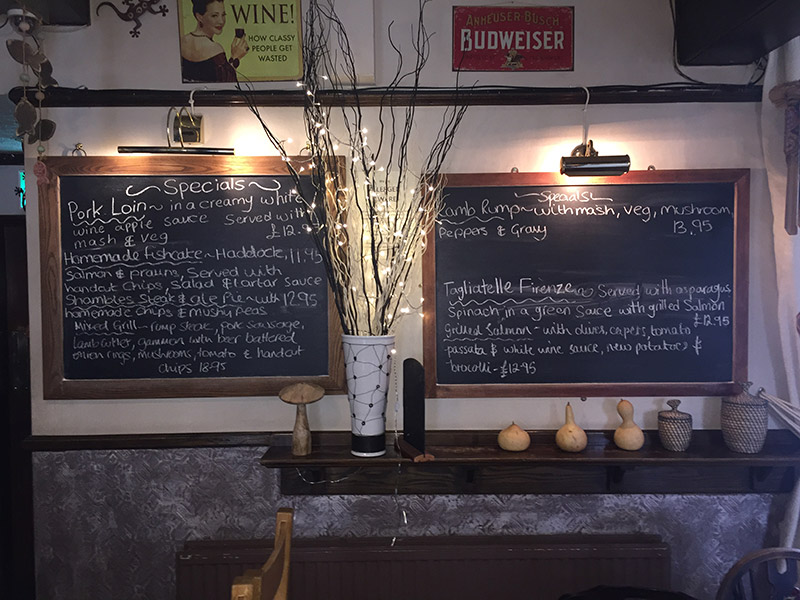 WINE!
HOW CLASSY
PEOPLE GET
WASTED
ANHEUSER-BUSCH
BUDWEISER
Specials
Pork Loin ~ in a creamy white
wine apple sauce Served with
mash & veg £12.9
Homemade fishcake ~ Haddock, 11.95
Salmon & prawns, Served with
handcut Chips, Salad & tartar sauce
Shambles Steak & ale Pie ~ with 12.95
homemade chips & mushy peas
Mixed Grill ~ rump steak, pork sausage,
Lamb cutlet, gammon with beer battered
onion rings, mushrooms, tomato & handcut
chips 18.95
Specials
Lamb Rump ~ with mash, veg, mushroom,
Peppers & Gravy 13.95
Tagliatelle Firenze ~ Served with asparagus
Spinach in a green Sauce with grilled Salmon
£12.95
Grilled Salmon ~ with olives, capers, tomato
passata & white wine sauce, new potatoes &
brocolli ~ £12.95